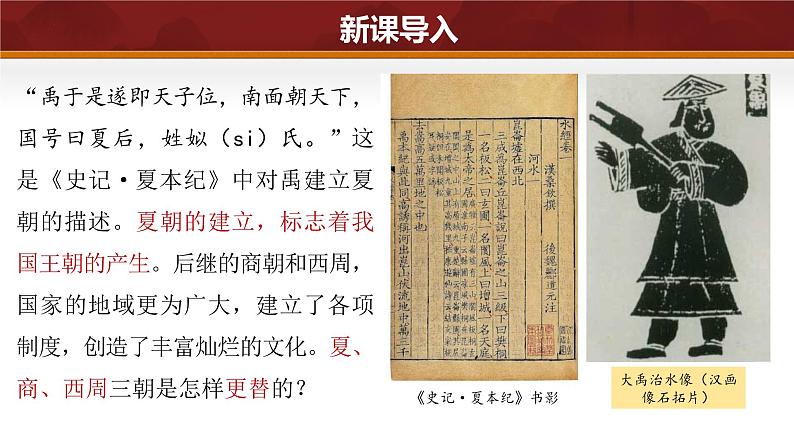 新课导入
“禹于是遂即天子位，南面朝天下，
国号曰夏后，姓姒（sì）氏。”这
是《史记·夏本纪》中对禹建立夏
朝的描述。夏朝的建立，标志着我
国王朝的产生。后继的商朝和西周，
国家的地域更为广大，建立了各项
制度，创造了丰富灿烂的文化。夏、
商、西周三朝是怎样更替的？
水經卷一
漢桑欽撰
後魏酈道元注
河水一
崑崙墟在西北
三成為崑崙丘崑崙說曰崑崙之山三級下曰樊桐
一名板松二曰玄圃一名閬風上曰增城一名天庭
是為太帝之居
去嵩高五萬里地之中也
禹本紀與此同高誘稱河出崑山伏流地
中萬三千
夏禹
《史记·夏本纪》书影
大禹治水像（汉画
像石拓片）